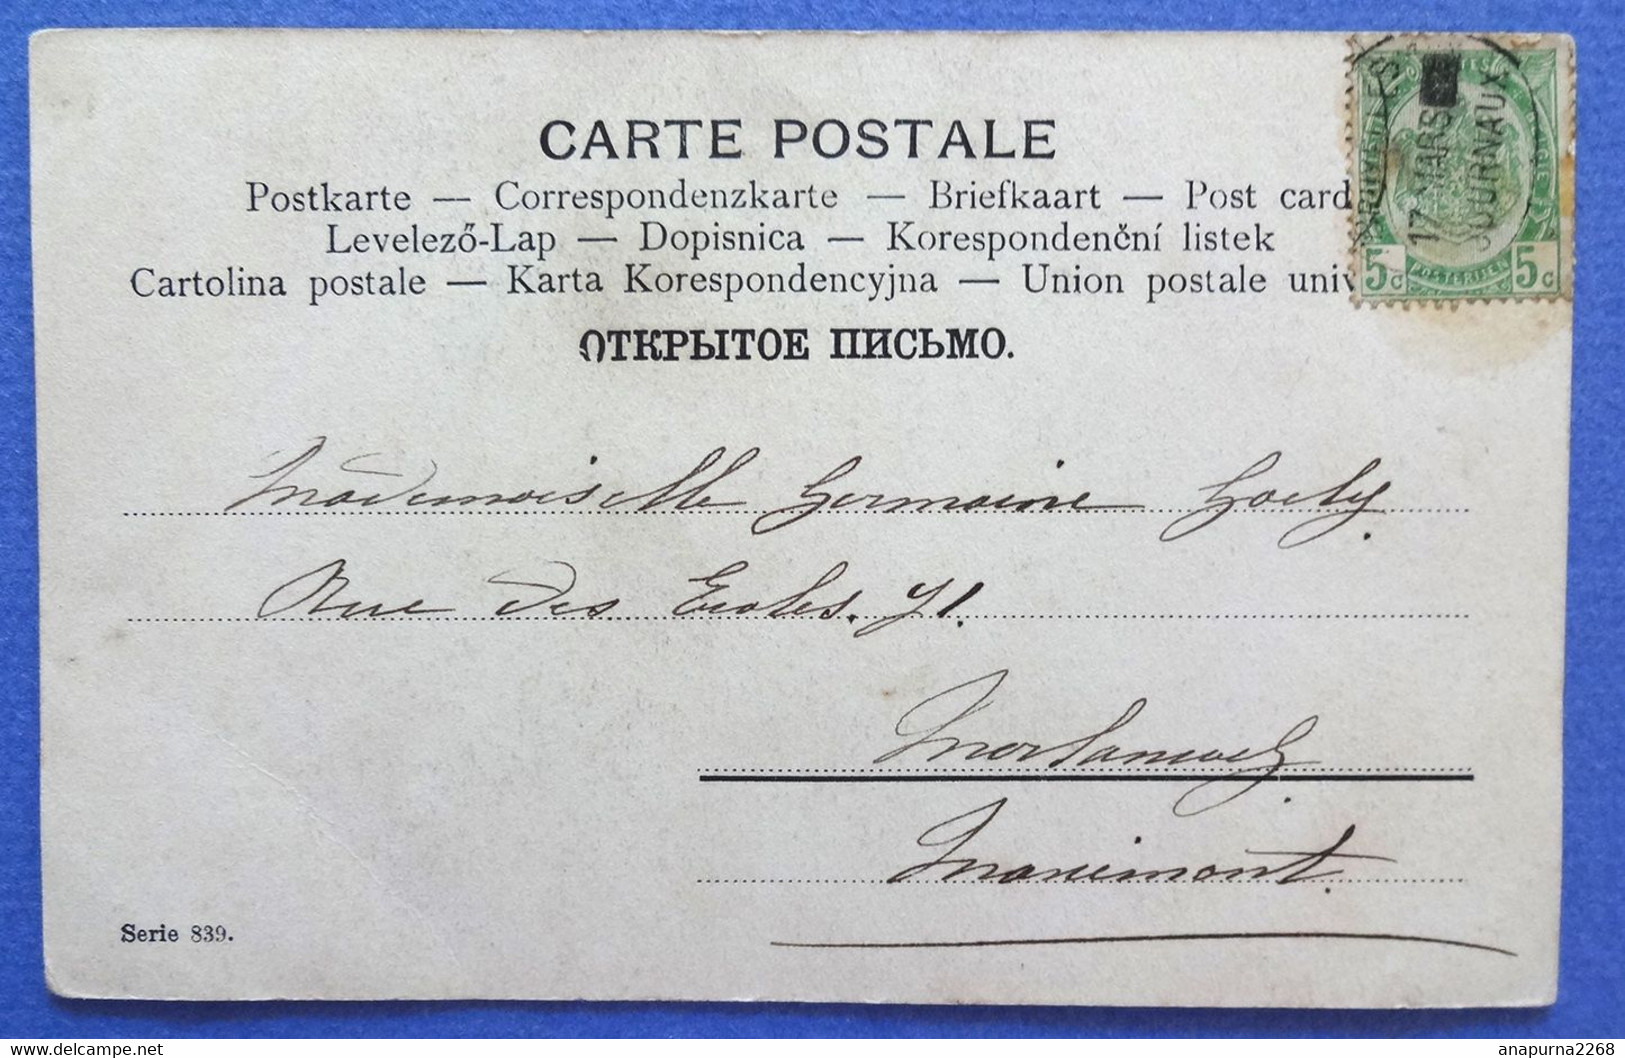 CARTE POSTALE
Postkarte — Correspondenzkarte — Briefkaart — Post card
Levelező-Lap — Dopisnica — Korespondenční listek
Cartolina postale — Karta Korespondencyjna — Union postale univ
ОТКРЫТОЕ ПИСЬМО.
17 MARS
JOURNAUX
5 c POSTERIJEN 5 c
Mademoiselle Germaine Goely.
Rue des Ecoles. 71.
Morlanwelz
Mariemont.
Serie 839.
anapurna2268